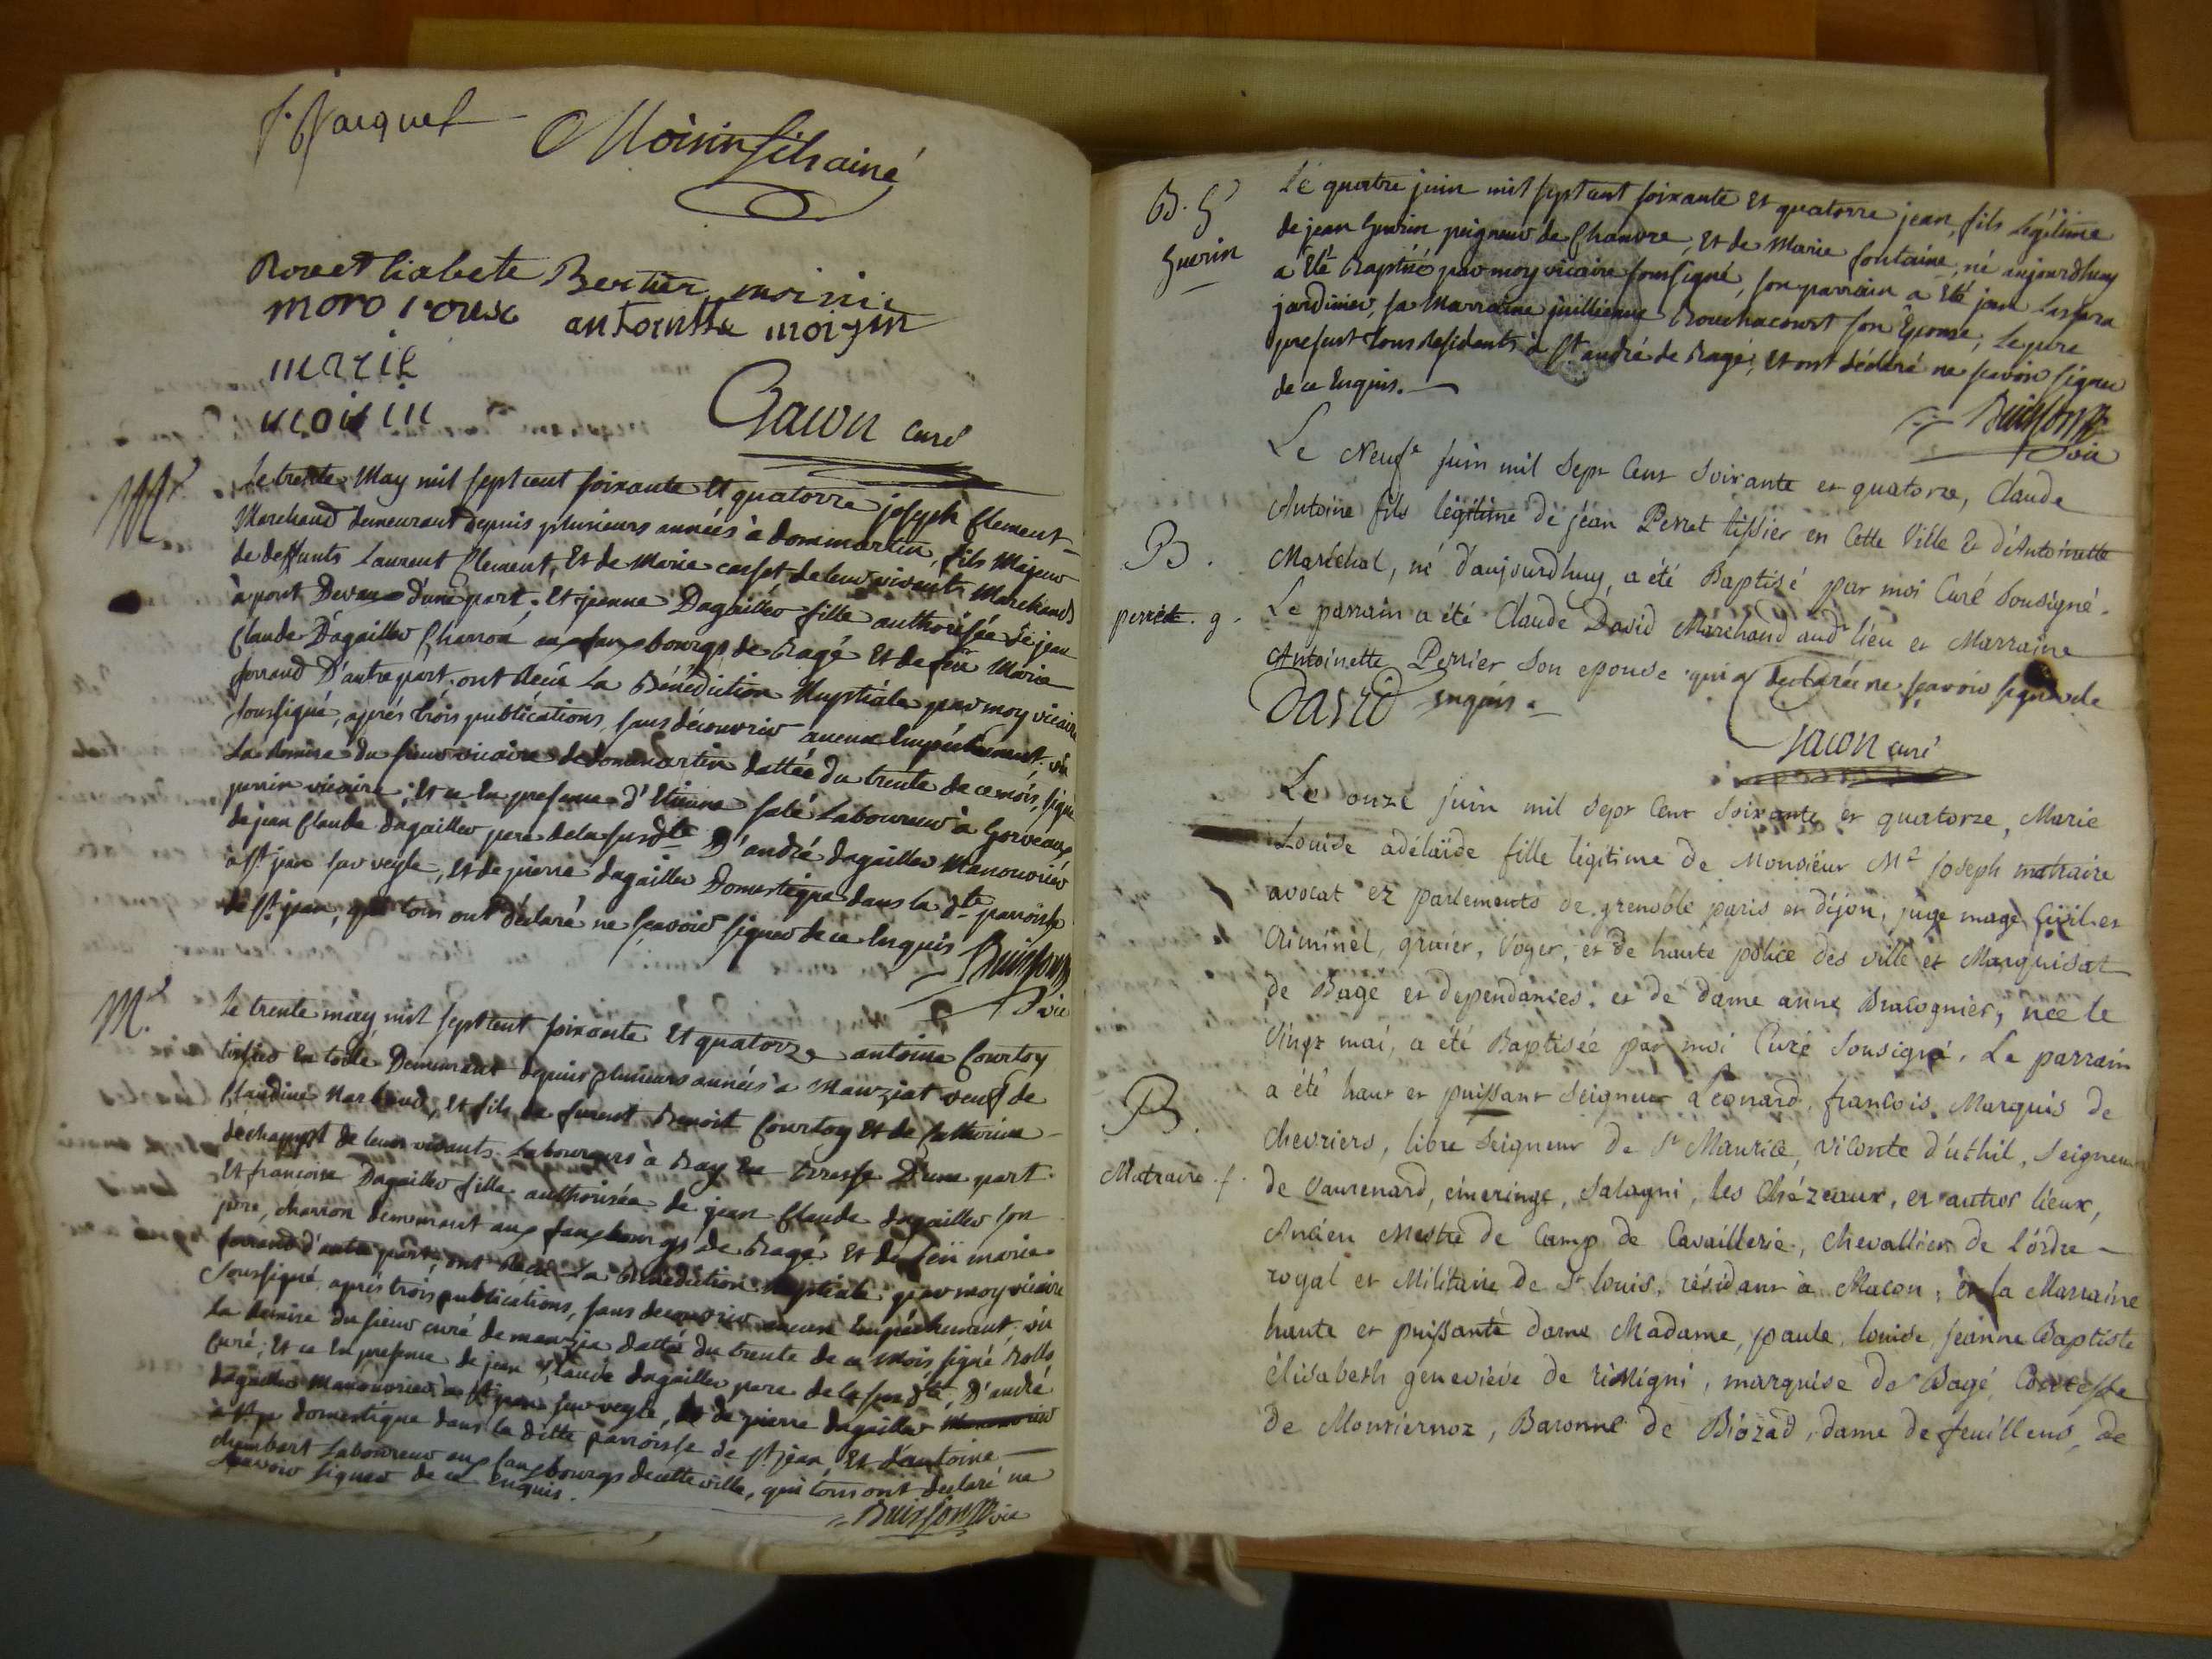 Jacquet
Moisin fils ainé
Bertier
moro roux antoinette moizin
Gacon curé
M.
Le trente May mil sept cent soixante et quatorze joseph Clement
Marchand demeurant depuis plusieurs années à dommartin, fils Majeur
de deffunts Laurent Clement, Et de Marie de leur vivants Marchands
à pont Devaux d'une part; Et jeanne Dagallier fille authorisée de jean
Claude Dagallier Charron aux faux bourgs de Bagé Et de feüe Marie
ferrand D'autre part, ont Recü La Bénédiction Nuptiale par moy vicaire
soussigné, aprés trois publications, sans découvrir aucun Empéchement vü
La demise du sieur vicaire de dommartin dattée du trente de ce mois, signé
perrin vicaire; Et ce En presence d'Etienne Laboureur à Gorrevaux
de jean Claude dagallier pere de la susdte D'andré dagallier Manouvrier
à st. jean sur veyle, Et de pierre dagallier Domestique dans la dte parroisse
de st. jean, qui tous ont déclaré ne sçavoir signer de ce Enquis
Buisson vic
M.
Le trente may mil sept cent soixante Et quatorze antoine Courtoy
tissier En toile Demeurant depuis plusieurs années à Manziat veuf de
Claudine Et fils de furent Benoit Courtoy Et de Catherine
dechampt de leur vivants Laboureurs à Bagé En Bresse D'une part
Et francoise Dagallier fille authorisée de jean Claude dagallier son
pere, charron demeurant aux faux bourgs de Bagé Et de feüe marie
ferrand d'autre part, ont Recü La Bénédiction Nuptiale par moy vicaire
soussigné aprés trois publications, sans decouvrir aucun Empéchement, vü
La demise du sieur curé de manzia dattée du trente de ce mois signé
Curé; Et ce En presence de jean Claude dagallier pere de la susdte, D'andré
dagallier manouvrier à st. jean sur veyle, Et de pierre dagallier Manouvrier
à st. domestique dans la ditte parroisse de st. jean Et d'antoine
chambart Laboureur aux faux bourgs de cette ville, qui tous ont declaré ne
sçavoir signer de ce Enquis.
Buisson vic
B. G
Guerin
Le quatre juin mil sept cent soixante Et quatorze jean, fils Légitime
de jean Guerin peigneur de Chanvre, Et de Marie fontaine, né aujourdhuy
a Eté Baptisé par moy vicaire soussigné, son parrain a Eté jean
jardinier, sa Marraine jullienne Bouchacourt son Epouse, Le pere
present tous Residents à St. andré de Bagé, Et ont déclaré ne sçavoir signer
de ce Enquis.
Buisson
vic
B.
perret. g.
Le Neufe juin mil sept Cent Soixante et quatorze, Claude
Antoine fils légitime de jéan Perret tissier en Cette Ville Et d'Antoinette
Maréchal, né d'aujourdhuy, a été Baptisé par moi Curé Sousigné.
Le parrain a été Claude David Marchand audt lieu et Marraine
Antoinette Perrier Son epouse qui a declarée ne sçavoir signer de
David enquis.
Gacon curé
B.
Matraire. f.
Le onze juin mil Sept Cent Soixante et quatorze, Marie
Louise adélaïde fille légitime de Monsiëur Me Joseph matraire
avocat ez parlements de grenoble paris et dijon, juge mage Civil et
Criminel, gruier, Voyer, et de haute police des ville et Marquisat
de Bagé et dependances. et de dame anne Bracognier, née le
Vingt mai, a été Baptisée par moi Curé Sousigné. Le parrain
a été haut et puissant seigneur Léonard, francois Marquis de
chevriers, libre Seigneur de St Maurice, viconte d'uchil, Seigneur
de Vaurenard, émeringe, Salagni, les Chézeaux, et autres lieux,
Ancien Mestre de Camp de Cavaillerie, chevallier de l'ordre
royal et Militaire de St louis, résidant à Macon; et la Marraine
haute et puissante dame Madame, paule, louise, Jeanne Baptiste
élisabeth geneviève de marquise de Bagé, Contesse
de Montiernoz, Baronne de Biozad, dame de feuillens, de